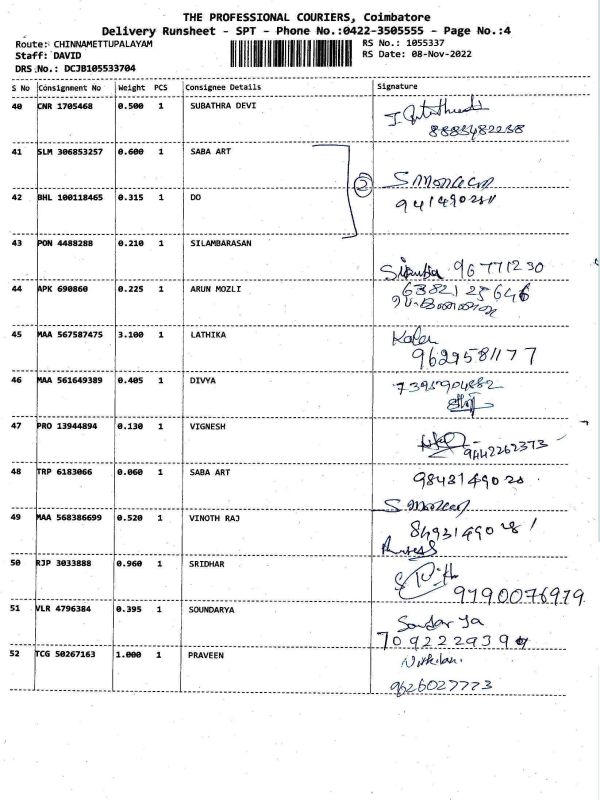 THE PROFESSIONAL COURIERS, Coimbatore
Delivery Runsheet - SPT - Phone No.:0422-3505555 - Page No.:4
Route: CHINNAMETTUPALAYAM
Staff: DAVID
DRS No.: DCJB105533704
RS No.: 1055337
RS Date: 08-Nov-2022
S No Consignment No Weight PCS Consignee Details Signature
40 CNR 1705468 0.500 1 SUBATHRA DEVI
8883482238
41 SLM 306853257 0.600 1 SABA ART
2
42 BHL 100118465 0.315 1 DO
43 PON 4488288 0.210 1 SILAMBARASAN
96 771230
44 APK 690860 0.225 1 ARUN MOZLI
6382125646
45 MAA 567587475 3.100 1 LATHIKA
9629581177
46 MAA 561649389 0.405 1 DIVYA
47 PRO 13944894 0.130 1 VIGNESH
9442262373
48 TRP 6183066 0.060 1 SABA ART
49 MAA 568386699 0.520 1 VINOTH RAJ
50 RJP 3033888 0.960 1 SRIDHAR
9790076979
51 VLR 4796384 0.395 1 SOUNDARYA
Soundarya
52 TCG 50267163 1.000 1 PRAVEEN
9626027773